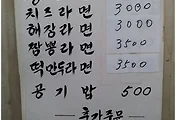 치즈라면 3000
해장라면 3000
짬뽕라면 3500
떡만두라면 3500
공기밥 500
추가주문